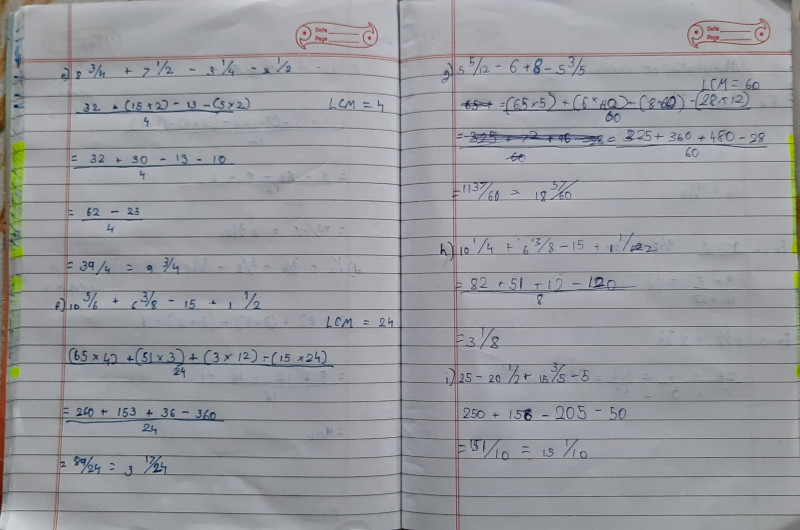 Date
Page
e) 8 3/4 + 7 1/2 - 3 1/4 - 2 1/2
32 + (15×2) - 13 - (5×2)
4
LCM = 4
= 32 + 30 - 13 - 10
4
= 62 - 23
4
= 39/4 = 9 3/4
f) 10 5/6 + 6 3/8 - 15 + 1 1/2
LCM = 24
(65×4) + (51×3) + (3×12) - (15×24)
24
= 260 + 153 + 36 - 360
24
= 89/24 = 3 17/24
Date
Page
g) 5 5/12 - 6 + 8 - 5 3/5
LCM = 60
= (65×5) + (6× - (8×60) - (28×12)
60
= 325 + 360 + 480 - 28
60
= 1137/60 = 18 57/60
h) 10 1/4 + 6 3/8 - 15 + 1 1/2
= 82 + 51 + 12 - 120
8
= 3 1/8
i) 25 - 20 1/2 + 15 3/5 - 5
250 + 156 - 205 - 50
= 151/10 = 15 1/10